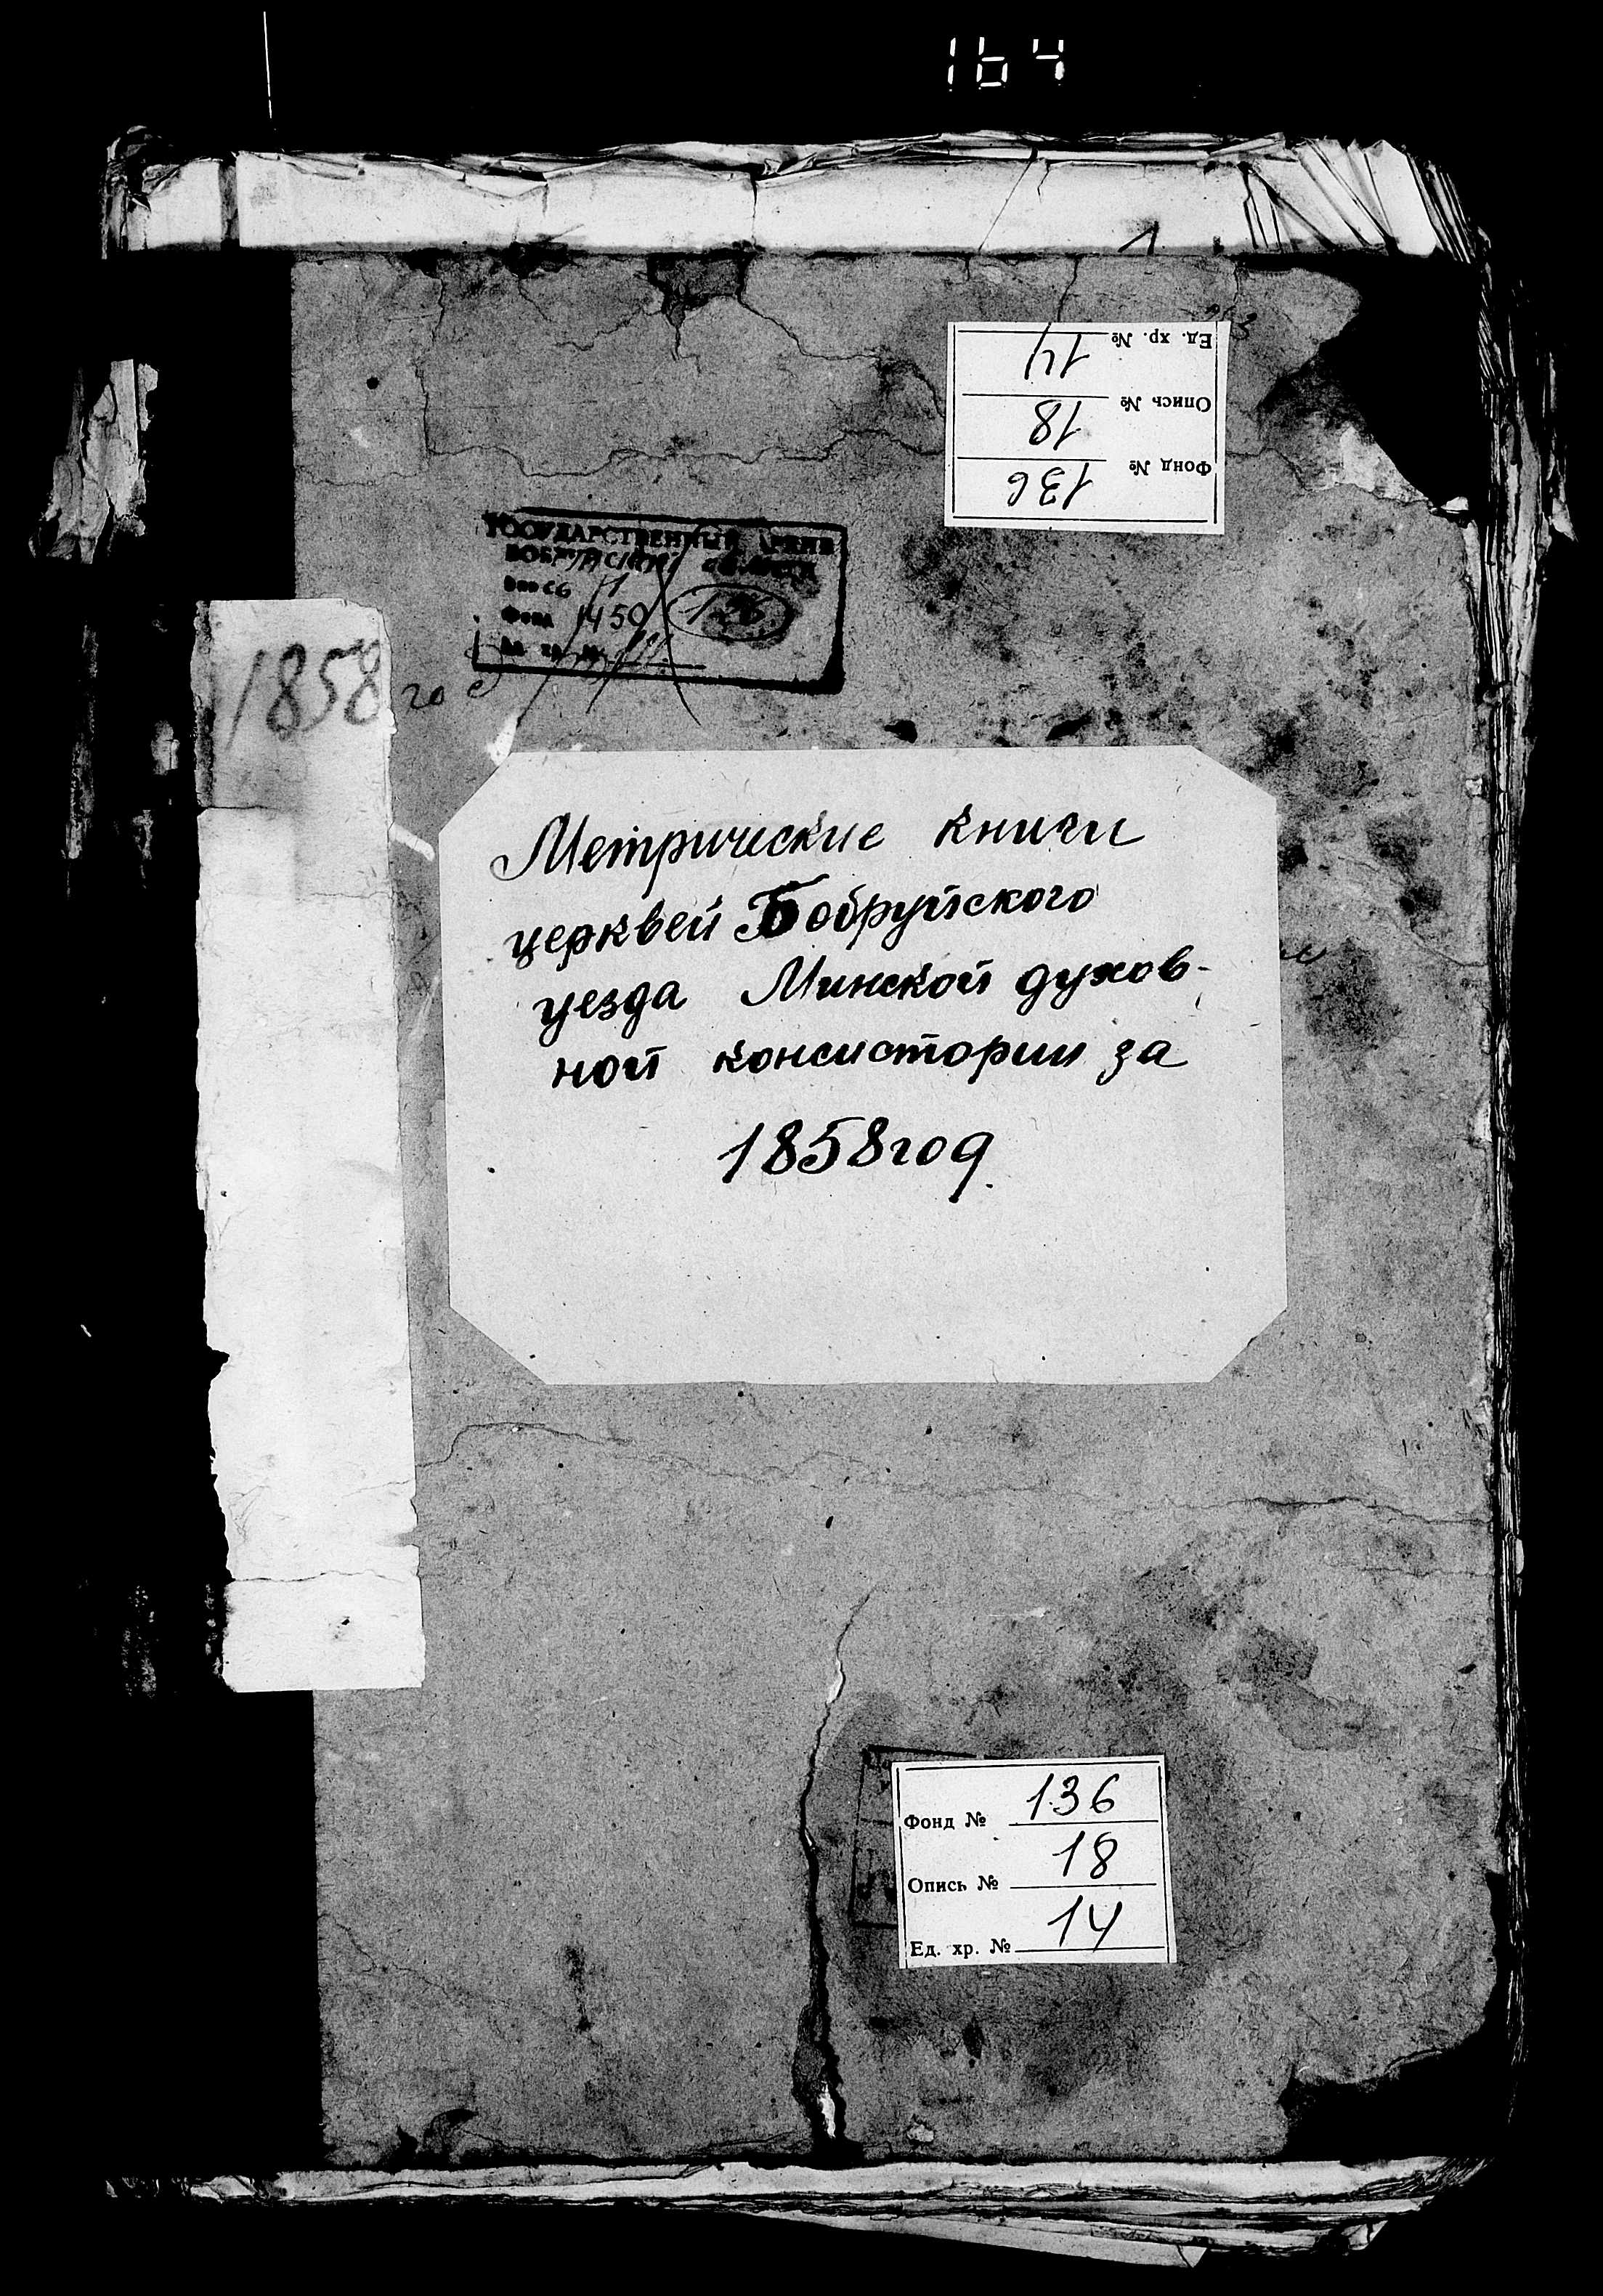 164
1
Ед. хр. № 14
Опись № 18
Фонд № 136
ГОСУДАРСТВЕННЫЙ АРХИВ
БОБРУЙСКОЙ ОБЛАСТИ
Опись
Фонд 1450
Ед. хр. №
1858 год
Метрические книги
церквей Бобруйского
уезда Минской духов-
ной консистории за
1858 год.
Фонд № 136
Опись № 18
Ед. хр. № 14